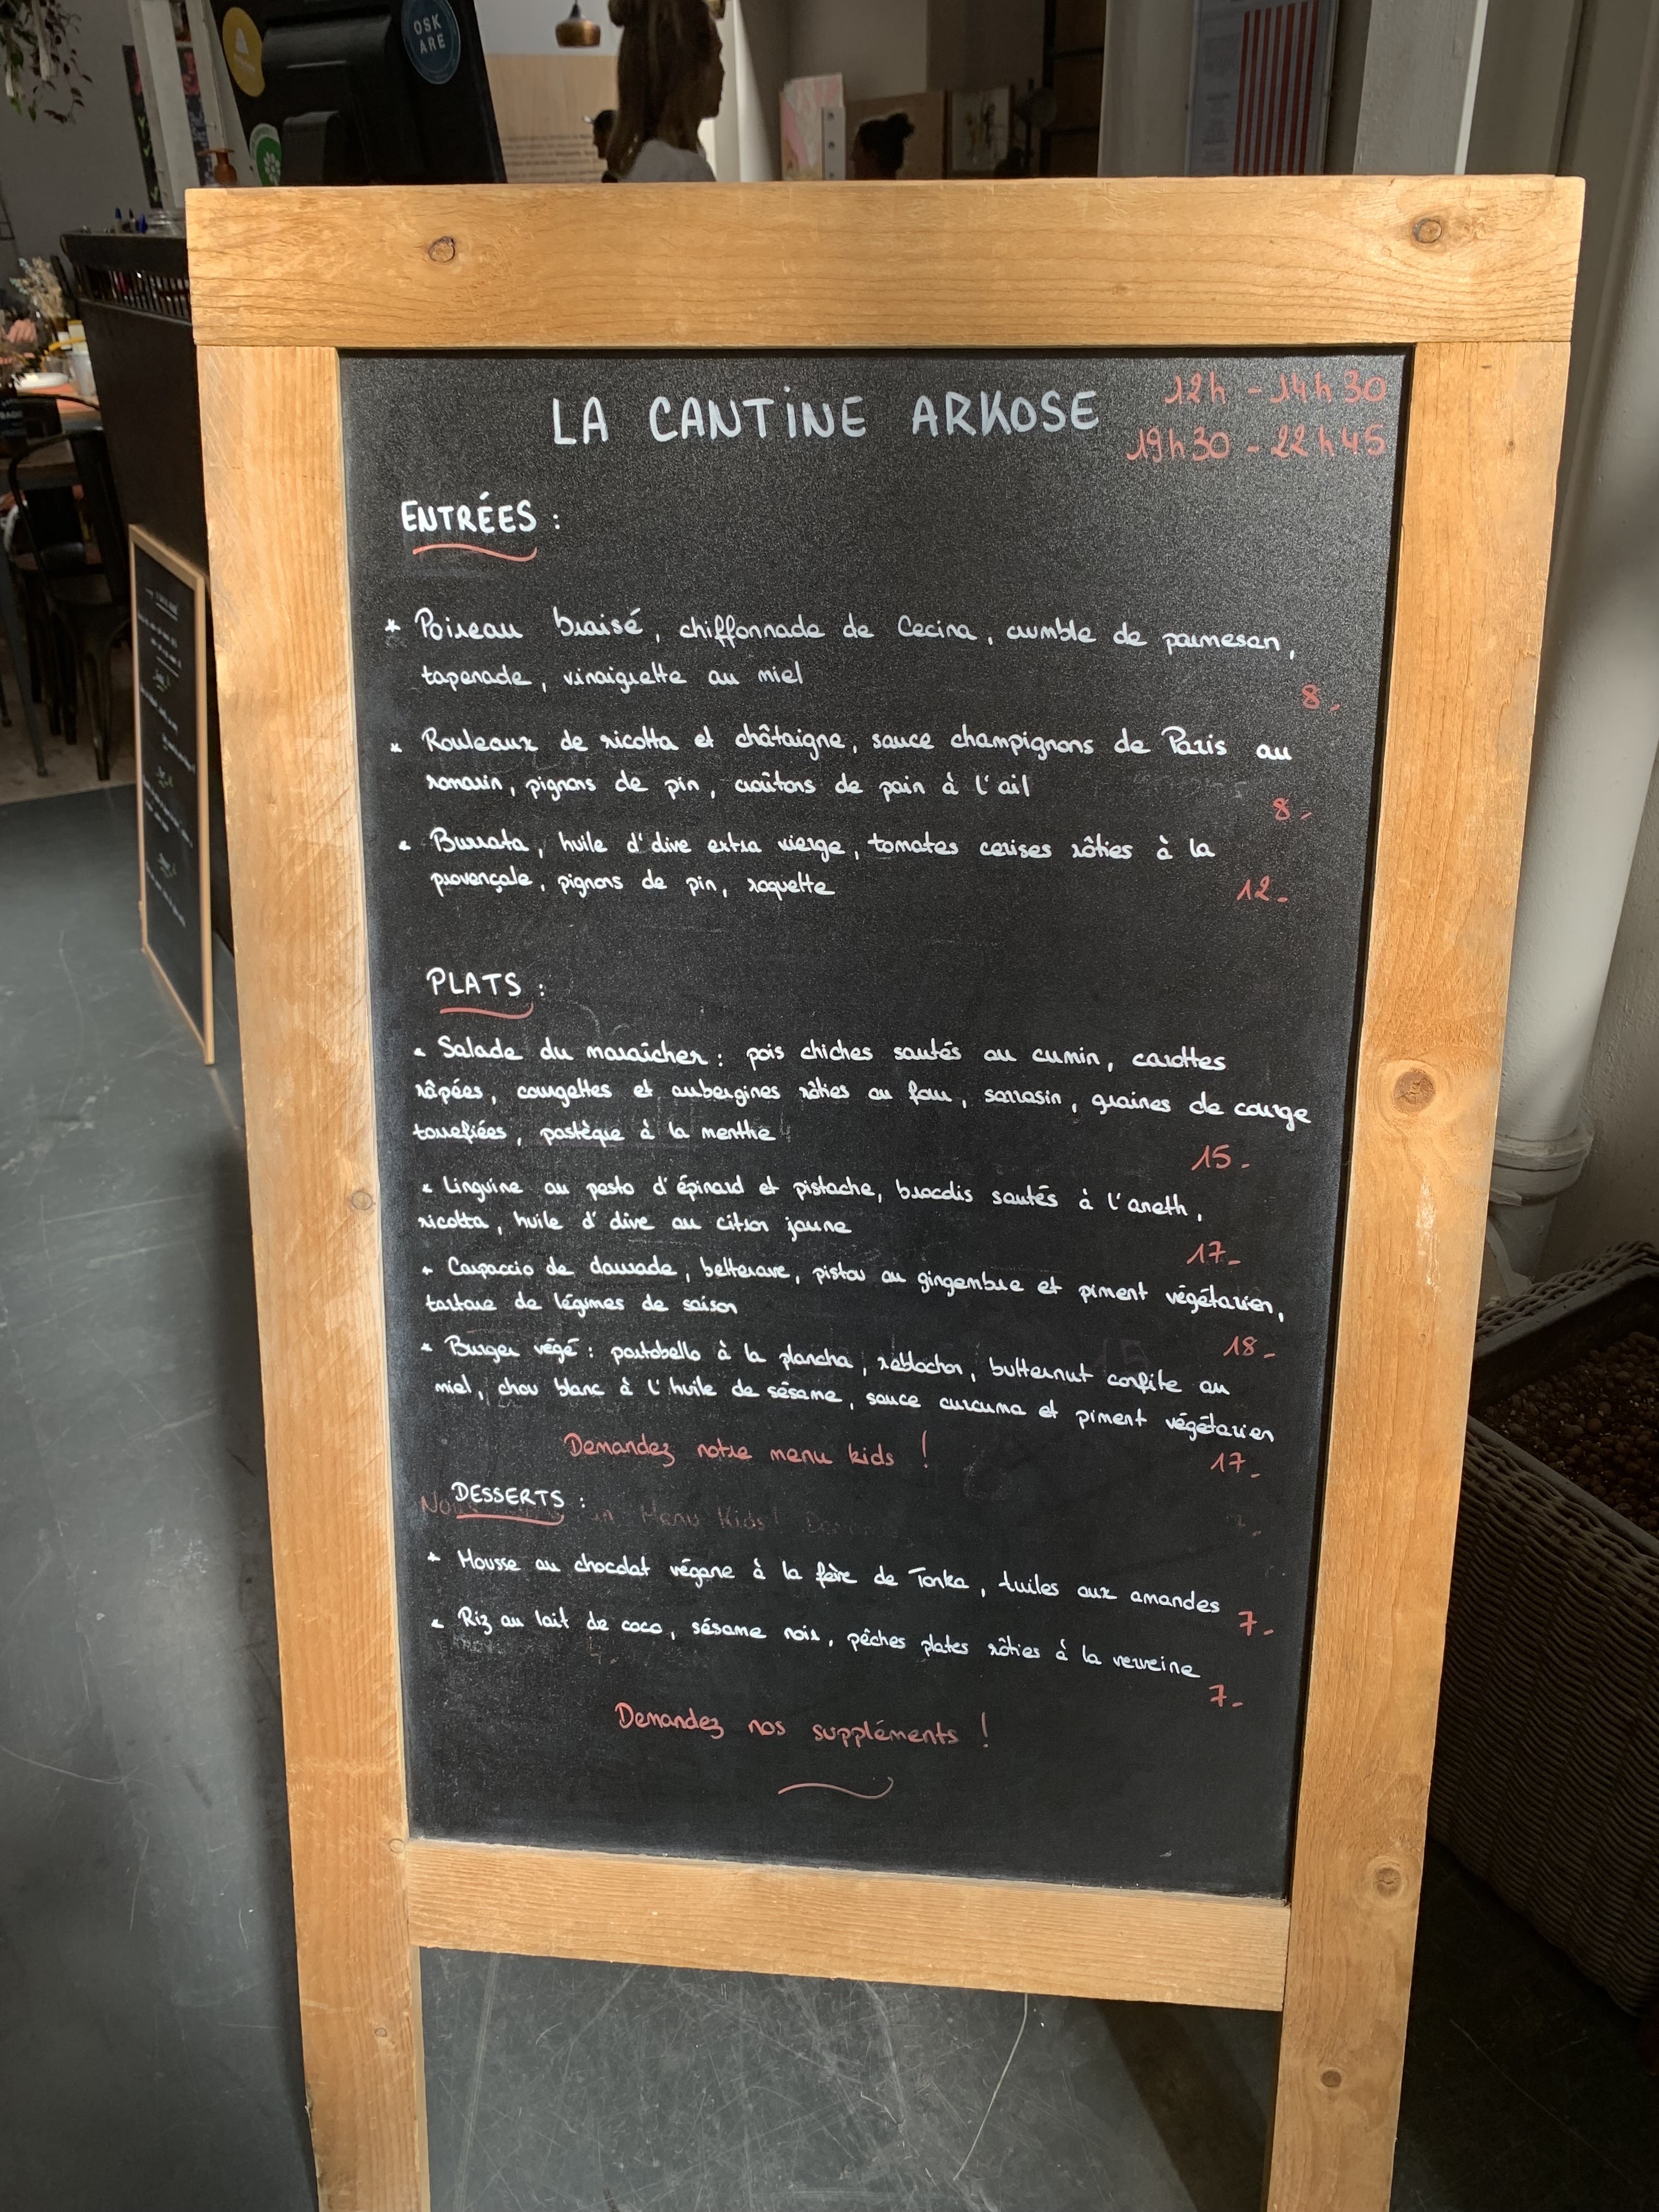 OSK
ARE
LA CANTINE ARKOSE
12h - 14h30
19h30 - 22h45
ENTRÉES :
* Poireau braisé, chiffonnade de Cecina, crumble de parmesan,
tapenade, vinaigrette au miel
8.
* Rouleaux de ricotta et châtaigne, sauce champignons de Paris au
romarin, pignons de pin, croûtons de pain à l'ail
8.
* Burrata, huile d'olive extra vierge, tomates cerises rôties à la
provençale, pignons de pin, roquette
12.
PLATS :
* Salade du maraîcher : pois chiches sautés au cumin, carottes
râpées, courgettes et aubergines rôties au four, sarrasin, graines de courge
torrefiées, pastèque à la menthe
15.
* Linguine au pesto d'épinard et pistache, brocolis sautés à l'aneth,
ricotta, huile d'olive au citron jaune
17.
* Carpaccio de daurade, betterave, pistou au gingembre et piment végétarien,
tartare de légumes de saison
18.
* Burger végé : portobello à la plancha, reblochon, butternut confite au
miel, chou blanc à l'huile de sésame, sauce curcuma et piment végétarien
17.
Demandez notre menu kids !
DESSERTS :
Menu Kids!
* Mousse au chocolat végane à la fève de Tonka, tuiles aux amandes
7.
* Riz au lait de coco, sésame noir, pêches plates rôties à la verveine
7.
Demandez nos suppléments !